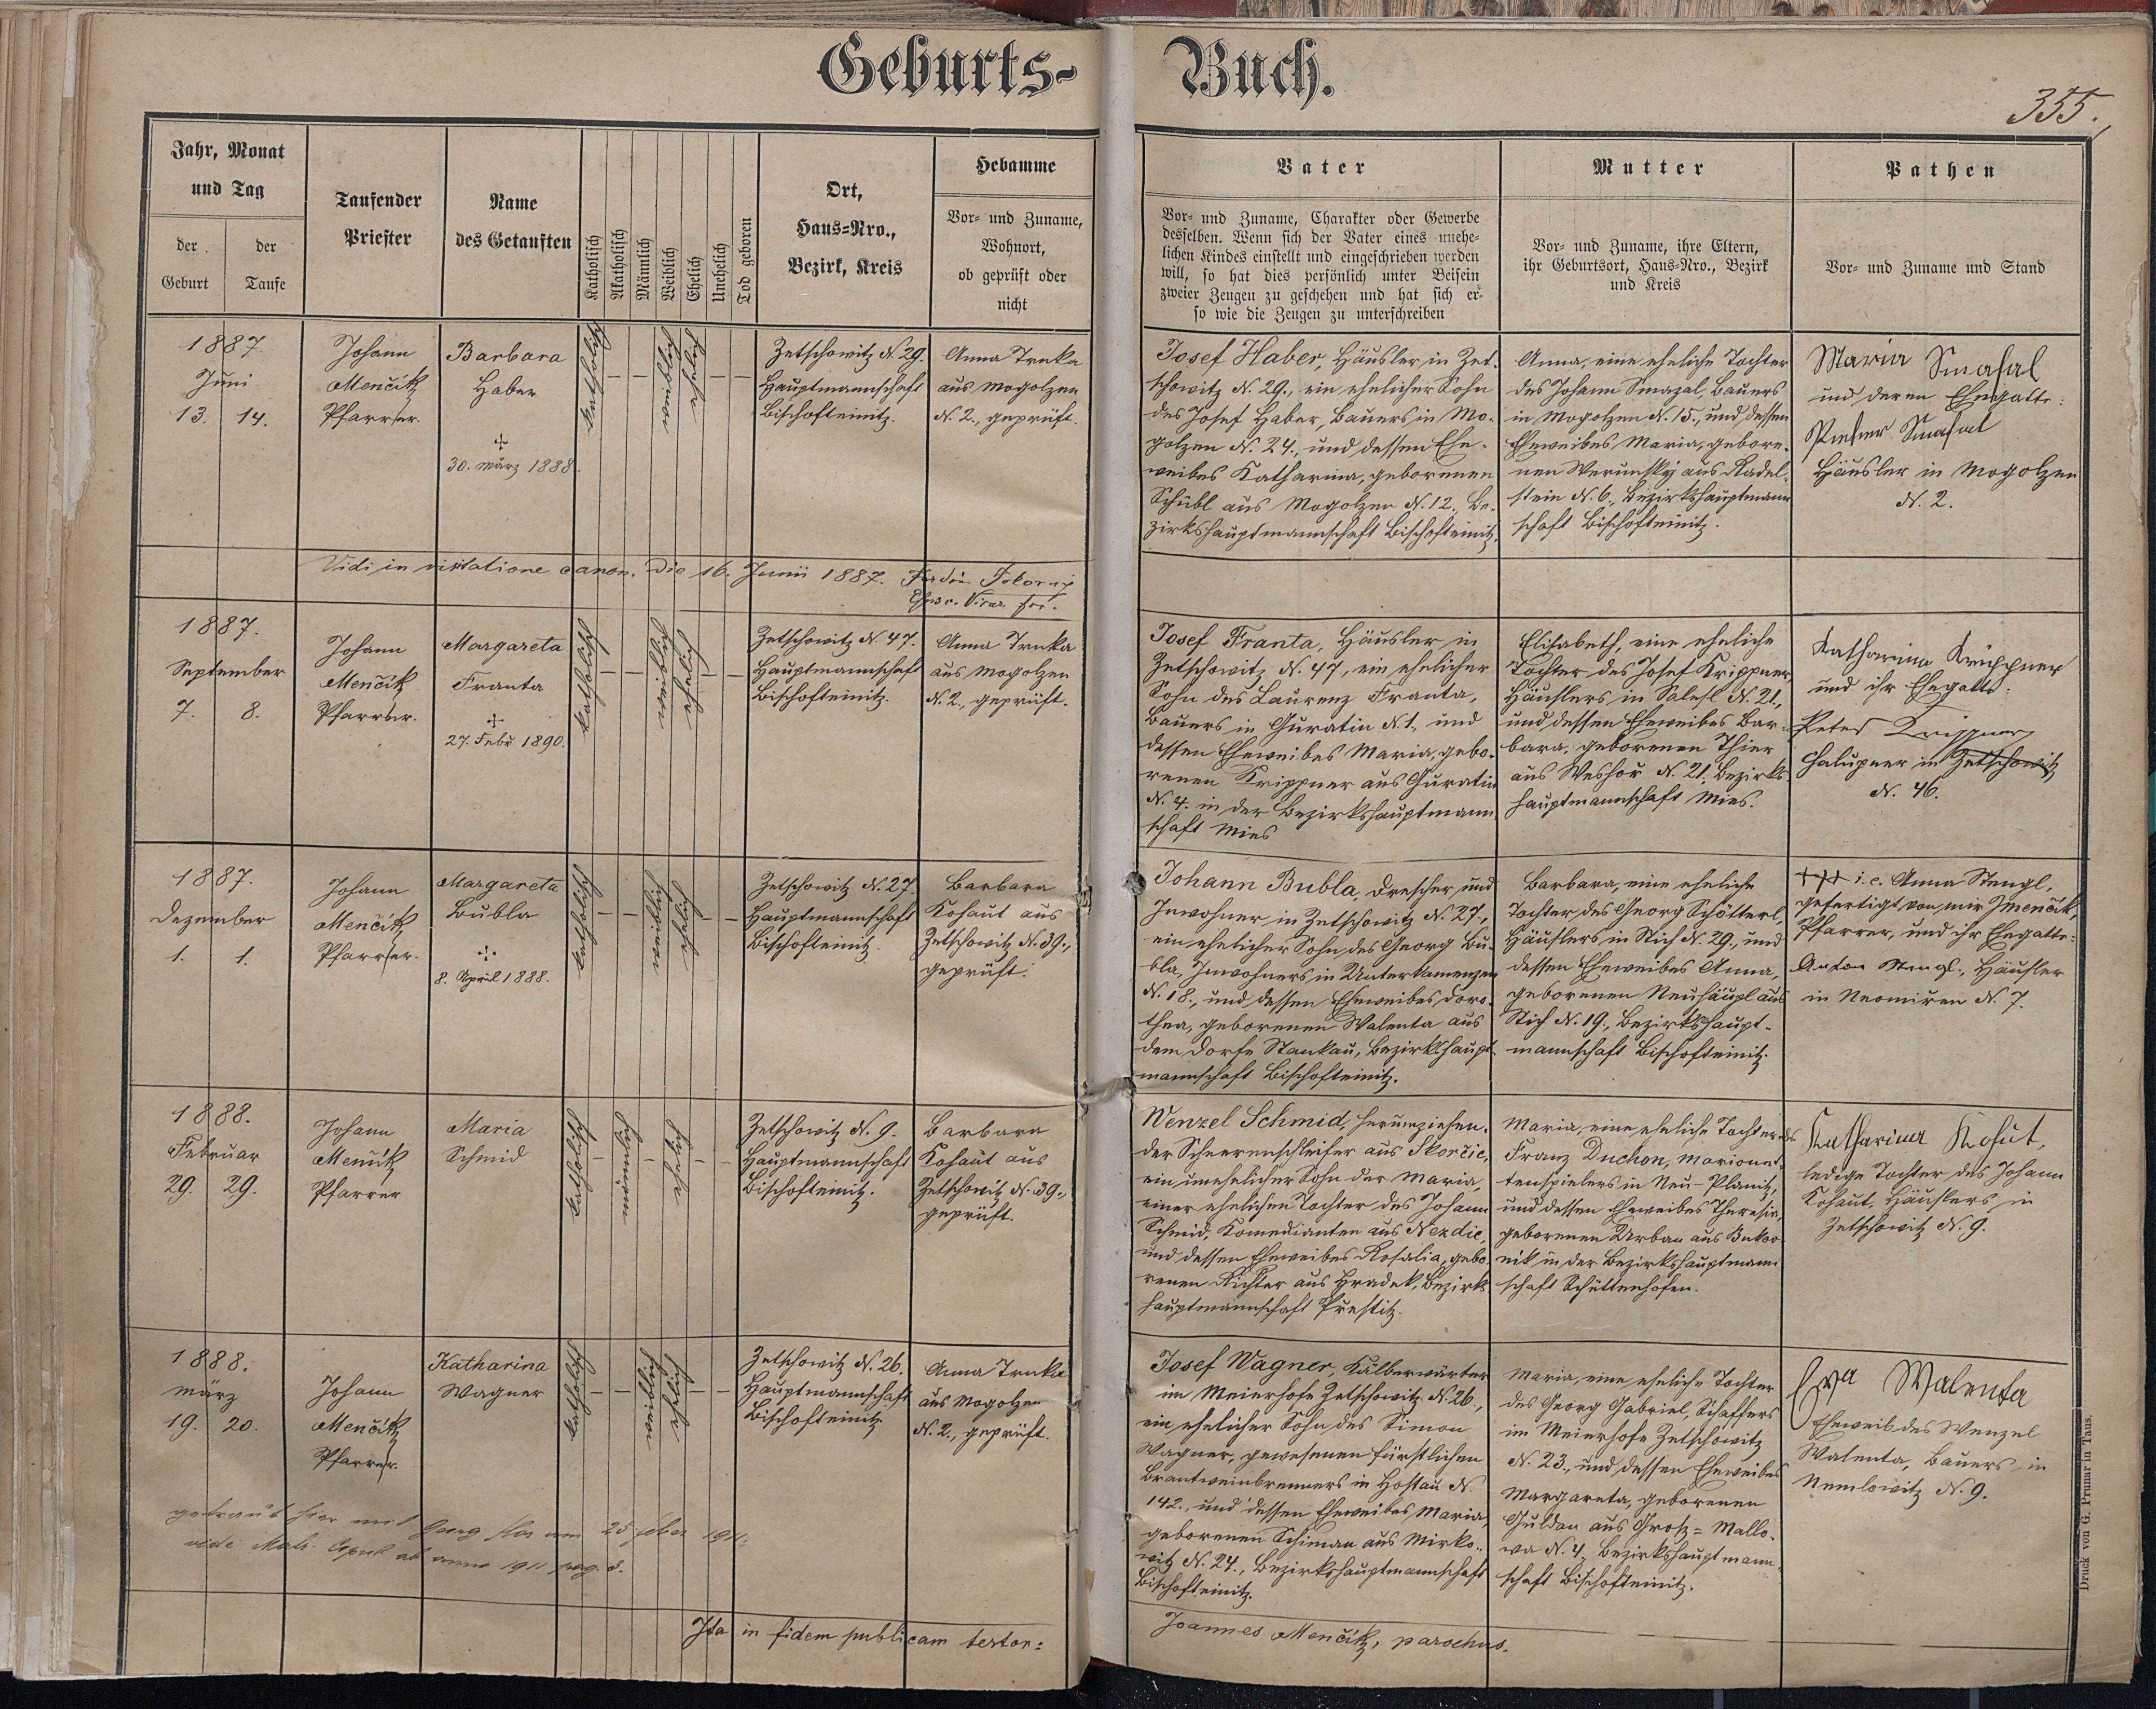 Geburts-
Buch.
355.
Jahr, Monat
und Tag
der
Geburt
der
Taufe
Taufender
Priester
Name
des Getauften
Katholisch
Akatholisch
Männlich
Weiblich
Ehelich
Unehelich
Tod geboren
Ort,
Haus-Nro.,
Bezirk, Kreis
Hebamme
Vor- und Zuname,
Wohnort,
ob geprüft oder
nicht
Vater
Vor- und Zuname, Charakter oder Gewerbe
desselben. Wenn sich der Vater eines unehe-
lichen Kindes einstellt und eingeschrieben werden
will, so hat dies persönlich unter Beisein
zweier Zeugen zu geschehen und hat sich er-
so wie die Zeugen zu unterschreiben
Mutter
Vor- und Zuname, ihre Eltern,
ihr Geburtsort, Haus-Nro., Bezirk
und Kreis
Pathen
Vor- und Zuname und Stand
1887.
Juni
13. 14.
Johann
Menčík
Pfarrer.
Barbara
Haber
30. März 1888.
katholisch
weiblich
ehelich
Zetschowitz N. 29.
Hauptmannschaft
Bischofteinitz.
Anna Trnka
aus Mogolzen
N. 2., geprüft.
Josef Haber, Häusler in Zet-
schowitz N. 29., ein ehelicher Sohn
des Josef Haber, Bauers in Mo-
golzen N. 24., und dessen Ehe-
weibes Katharina, geborenen
Schübl aus Mogolzen N. 12., Be-
zirkshauptmannschaft Bischofteinitz.
Anna, eine eheliche Tochter
des Johann Smazal, Bauers
in Mogolzen N. 15., und dessen
Eheweibes Maria, gebore-
nen Werunsky aus Radel-
stein N. 6., Bezirkshauptmann
schaft Bischofteinitz.
Maria Smasal
und deren Ehegatte:
Smasal
Häusler in Mogolzen
N. 2.
Vidi in visitatione canon. die 16. Junii 1887.
1887.
September
7. 8.
Johann
Menčík
Pfarrer.
Margareta
Franta
27. Febr 1890.
katholisch
weiblich
ehelich
Zetschowitz N. 47.
Hauptmannschaft
Bischofteinitz.
Anna Trnka
aus Mogolzen
N. 2., geprüft.
Josef Franta, Häusler in
Zetschowitz N. 47., ein ehelicher
Sohn des Laurenz Franta,
Bauers in Guratin N. 1., und
dessen Eheweibes Maria, gebo-
renen Krippner aus Guratin
N. 4. in der Bezirkshauptmann
schaft Mies
Elisabeth, eine eheliche
Tochter des Josef Krippner,
Häuslers in Salesl N. 21.,
und dessen Eheweibes Bar-
bara, geborenen Thier
aus Weshor N. 21., Bezirks-
hauptmannschaft Mies.
Katharina Krippner
und ihr Ehegatte:
Peter Krippner
Chalupner in Zetschowitz
N. 46.
1887.
Dezember
1. 1.
Johann
Menčík
Pfarrer.
Margareta
Bubla
8. April 1888.
katholisch
weiblich
ehelich
Zetschowitz N. 27.
Hauptmannschaft
Bischofteinitz.
Barbara
Kohaut aus
Zetschowitz N. 39.,
geprüft.
Johann Bubla, Drescher und
Inwohner in Zetschowitz N. 27.,
ein ehelicher Sohn des Georg Bu-
bla, Inwohners in Unterkamenzen
N. 18., und dessen Eheweibes Doro-
thea, geborenen Walenta aus
dem Dorfe Stankau, Bezirkshaupt-
mannschaft Bischofteinitz.
Barbara, eine eheliche
Tochter des Georg Schötterl,
Häuslers in Stich N. 29., und
dessen Eheweibes Anna,
geborenen Neuhäupl aus
Stich N. 19., Bezirkshaupt-
mannschaft Bischofteinitz.
+++ i. e. Anna Stengl,
gefertigt von mir JMenčík,
Pfarrer, und ihr Ehegatte:
Anton Stengl, Häusler
in Neomiren N. 7.
1888.
Februar
29. 29.
Johann
Menčík
Pfarrer
Maria
Schmid
katholisch
ehelich
Zetschowitz N. 9.
Hauptmannschaft
Bischofteinitz.
Barbara
Kohaut aus
Zetschowitz N. 39.,
geprüft.
Wenzel Schmid, herumziehen-
der Scheerenschleifer aus Skorčic,
ein unehelicher Sohn der Maria,
einer ehelichen Tochter des Johann
Schmid, Komedianten aus Nezdic,
und dessen Eheweibes Rosalia, gebo-
renen Richter aus Hradek, Bezirks-
hauptmannschaft Přestitz.
Maria, eine eheliche Tochter des
Franz Duchon, Marionet-
tenspielers in Neu-Planitz,
und dessen Eheweibes Theresia,
geborenen Urban aus Bukov
nik in der Bezirkshauptmann
schaft Schüttenhofen.
Katharina Kohut,
ledige Tochter des Johann
Kohaut, Häuslers in
Zetschowitz N. 9.
1888.
März
19. 20.
Johann
Menčík
Pfarrer.
Katharina
Wagner
katholisch
weiblich
ehelich
Zetschowitz N. 26.
Hauptmannschaft
Bischofteinitz
Anna Trnka
aus Mogolzen
N. 2., geprüft.
Josef Wagner, Kälberwärter
im Meierhofe Zetschowitz N. 26.,
ein ehelicher Sohn des Simon
Wagner, gewesenen fürstlichen
Brantweinbrenners in Hostau N.
142., und dessen Eheweibes Maria,
geborenen Schiman aus Mirko-
witz N. 24., Bezirkshauptmannschaft
Bischofteinitz.
Maria, eine eheliche Tochter
des Georg Gabriel, Schaffers
im Meierhofe Zetschowitz
N. 23., und dessen Eheweibes
Margareta, geborenen
Guldan aus Groß-Mallo-
wa N. 4., Bezirkshauptmann-
schaft Bischofteinitz.
Eva Walenta
Eheweib des Wenzel
Walenta, Bauers in
Nemlowitz N. 9.
getraut hier mit Georg am 25. 1911.
vide anno 1911 pag. 3.
Ita in fidem publicam testor:
Joannes Menčík, parochus.
Druck von G. Prunar in Taus.